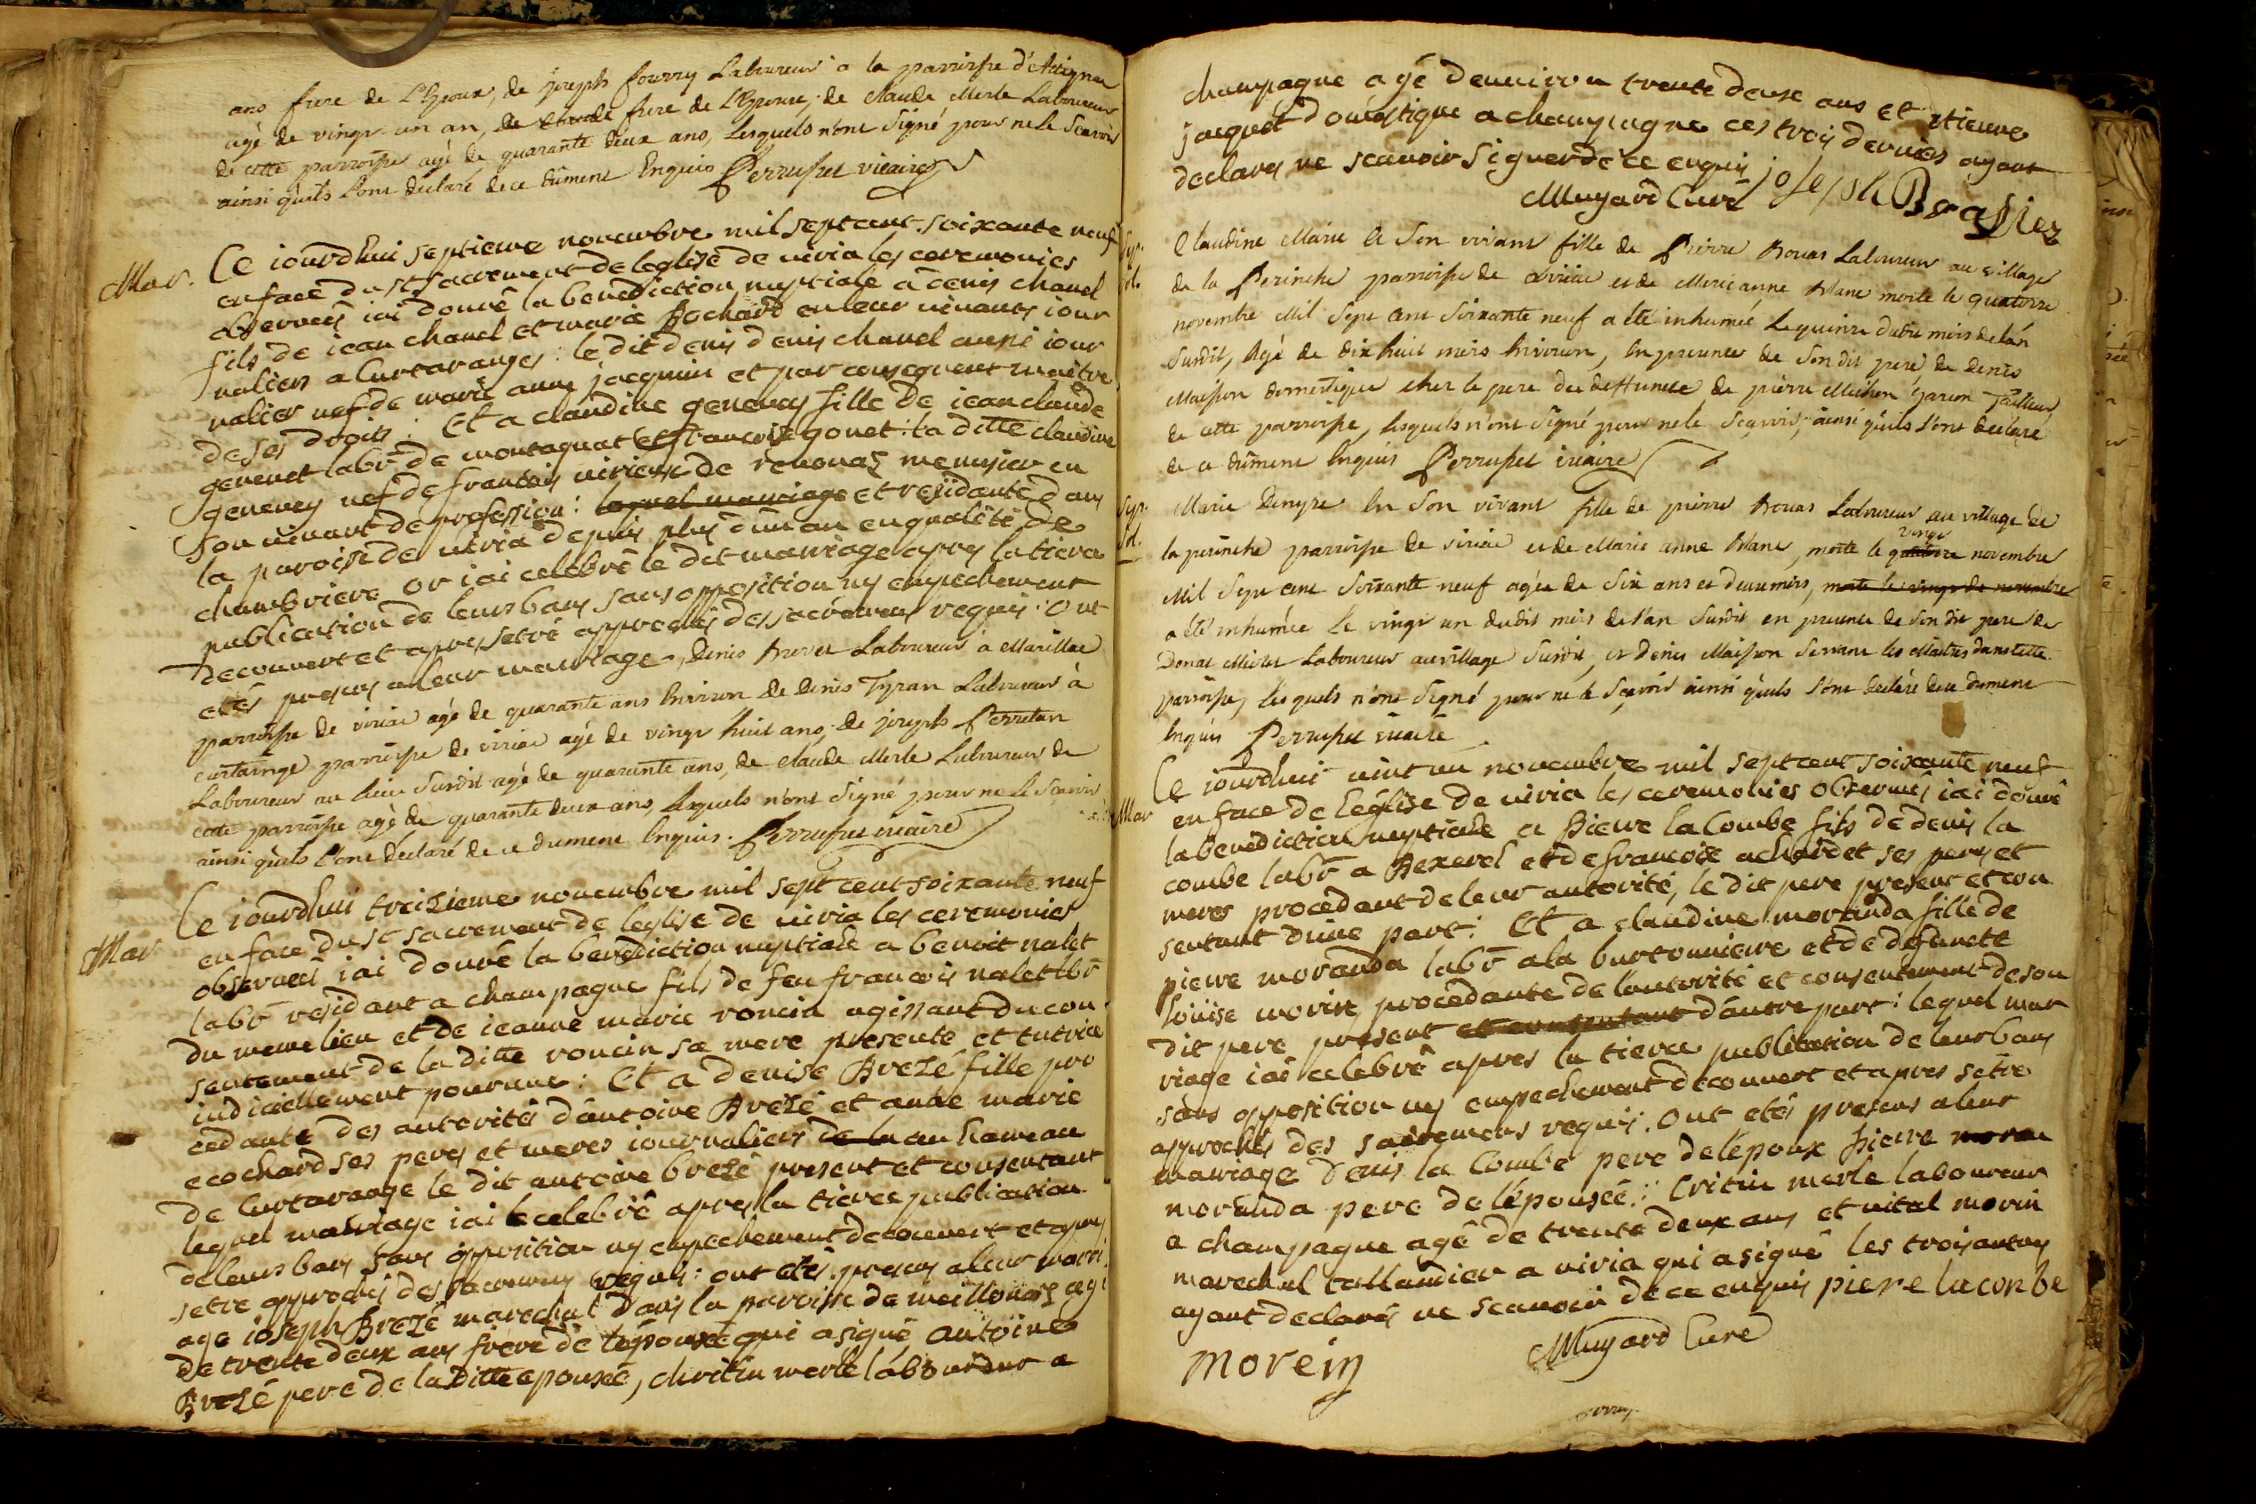 ans frere de L'Epoux, de joseph fourny Laboureur a la parroisse d'Attignat
agé de vingt un an, frere de L'Epouse, de claude Merle Laboureur
de cette parroisse agé de quarante deux ans, lesquels n'ont Signé pour ne le Scavoir
ainsi qu'ils l'ont declaré de ce dûment Enquis Perruquet vicaire
Mar. Ce iourdhui septieme novembre mil sept cent soixante neuf
en face du st sacrement de leglise de viria les ceremonies
observeés iai donné la benediction nuptiale a denis chanel
fils de iean chanel et marie Bochard en leur vivants iour
naliers a Curtaranges: le dit denis denis chanel aussi iour
nalier vef de marie anne jacquin et par consequent maitre
de ses droits: Et a claudine genevey fille de iean claude
genevet labr de montagnat et francoise gouet: la ditte claudine
genevey vef de francois virieux de revonas menusier en
son vivant de profession: lequel mauriage et residante dans
la paroisse de viria depuis plus dun an en qualité de
chambriere or iai celebré le dit mauriage apres la tierce
publication de leurs bans sans opposition ny empechement
decouvert et apres setre approchés des sacremens requis: Ont
etés presens a leur mauriage, Denis Brevet Laboureur à Marillac
parroisse de viriac agé de quarante ans Environ de Denis Tyran Laboureur à
curtaringe parroisse de viriac agé de vingt huit ans, de joseph Perretan
Laboureur au lieu Susdit agé de quarante ans, de claude Merle Laboureur de
cette parroisse agé de quarante deux ans, lesquels n'ont Signé pour ne le Scavoir
ainsi qu'ils l'ont declaré de ce dument Enquis. Perruquet vicaire
Mar Ce iourdhui treizieme novembre mil sept cent soixante neuf
en face du st sacrement de leglise de viria les ceremonies
observeés iai donné la benediction nuptiale a benoit nalet
labr residant a champagne fils de feu francois nalet lbr
du meme lieu et de ieanne marie roncin agissant du con
sentement de la ditte roncin sa mere presente et tutrice
iudiciellement pourvue: Et a denise Brezé fille pro
cedante des autorités d'antoine Brezé et anne marie
ecochard ses peres et meres iournaliers de la au hameau
de Curtarange le dit antoine brezé present et consentant
lequel mauriage iai celebré apres la tierce publication
de leurs bans sans opposition ny empechement decouvert et apres
setre approchés des sacremens requis: ont etés presens a leur mauri
age ioseph Brezé marechal dans la paroisse de meillonas agé
de trente deux ans frere de lépouseé qui a signé antoine
Brezé pere de la ditte epouseé, chritin merle laboureur a
champagne agé denviron trente deux ans et etienne
jacquet domestique a champagne ces trois derniers ayant
declarés ne scavoir signer de ce enquis joseph Brasiez
Mugard Curé
Claudine Marie En Son vivant fille de Pierre Bouas Laboureur au village
de la Perinche parroisse de viriac et de Marie anne Blanc morte le quatorze
novembre Mil Sept cent Soixante neuf a été inhumée le quinze dudit mois de l'an
Susdit, Agé de dix huit mois Environ, En presence de Son dit pere de Denis
Maisson Domestique chez le pere de la deffuncte de pierre Michon Garcon Tailleur
de cette parroisse, lesquels n'ont Signé pour ne le Scavoir, ainsi qu'ils l'ont declaré
de ce dûment Enquis Perruquet vicaire
Marie Denyse En Son vivant fille de pierre Bouas Laboureur au village de
la perinche parroisse de viriac et de Marie anne Blanc, morte le vingt novembre
Mil Sept cent Soixante neuf agée de Six ans et deux mois, morte le vingt de novembre
a été inhumée le vingt un dudit mois de l'an Susdit en presence de Son dit pere de
Donat Michet Laboureur au village Susdit, et Denis Maisson Servant les Maitres dans cette
parroisse, lesquels n'ont Signé pour ne le Scavoir ainsi qu'ils l'ont declaré de ce dument
Enquis Perruquet vicaire
Mar Ce iourdhui vint un novembre mil sept cent soixante neuf
en face de l'église de viria les ceremonies observeés iai donné
la benediction nuptiale a Pierre la Combe fils de denis la
combe labr a Bexerel et de francoise achardet ses peres et
meres procedant de leur autorité, le dit pere present et con
sentant d'une part: Et a claudine moranda fille de
pierre moranda labr a la burtonniere et de defuncte
loüise morin, procedante de l'autorité et consentement de son
dit pere present et consentant d'autre part: lequel mar
riage iai celebré apres la tierce publication de leurs bans
sans opposition ny empechement decouvert et apres setre
approchés des sacremens requis: Ont etés presens a leur
mauriage denis la Combe pere de lépoux pierre moran
moranda pere de l'épouseé: Critin merle laboureur
a champagne agé de trente deux ans et vital morin
marechal taillandier a viria qui a signé les trois autres
ayant declarés ne scavoir de ce enquis piere laconbe
morein
Mugard Curé